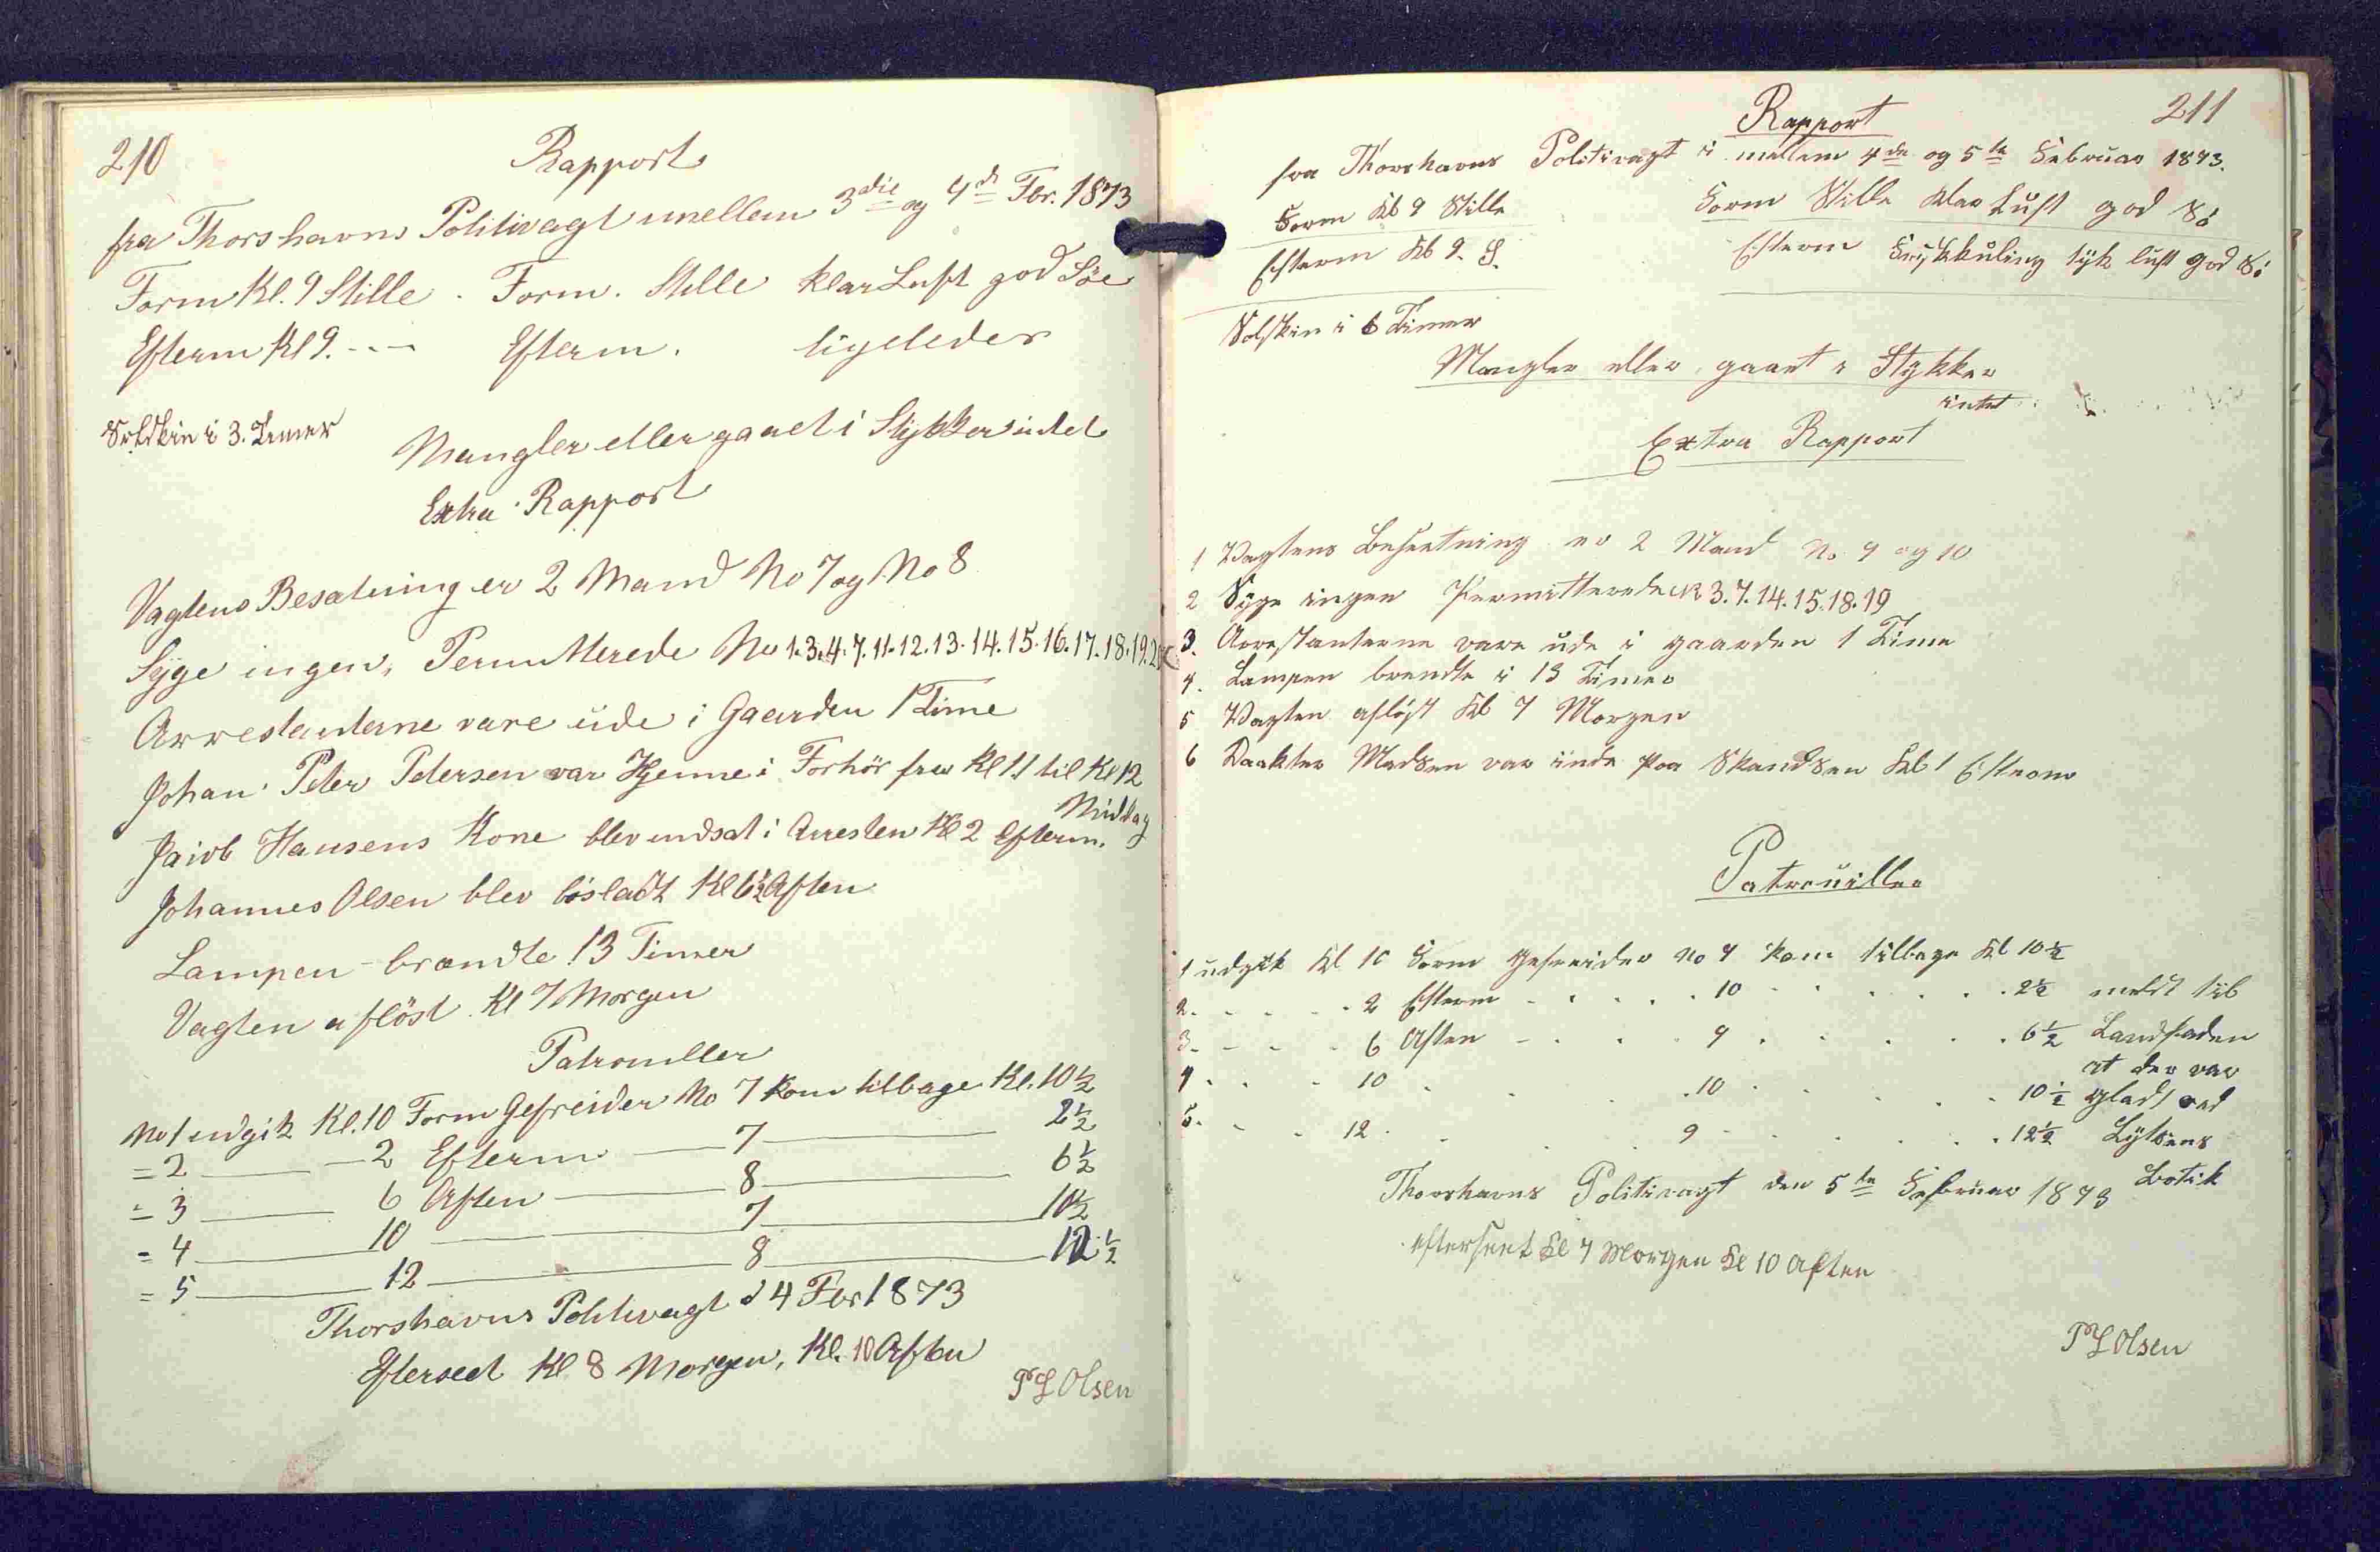 210
Rapport
fra Thorshavns Politivagt imellem 3die og 4de Fbr. 1873
Form Kl. 9 Stille . Form. Stille klar Luft god Söe
Efterm Kl 9. - - - Efterm. ligeledes
Solskin i 3. Timer
Mangler eller gaaet i Stykker intet
Extra Rapport
Vagtens Besætning er 2 Mand No 7 og No 8
Syge ingen, Permitterede No 1.3.4.7.11.12.13.14.15.16.17.18.19.20
Arrestanterne vare ude i Gaarden 1 Time
Johan Peter Petersen var Hjemme i Forhör fra Kl 11 til Kl 12
Middag
Jacob Hansens Kone blev indsat i Arresten Kl 2 Efterm.
Johannes Olsen blev lösladt Kl 6½ Aften
Lampen brændte 13 Timer
Vagten aflöst Kl 7 Morgen
Patrouiller
No 1 udgik Kl. 10 Form Gefreider No 7 kom tilbage Kl. 10½
= 2 — 2 Efterm — 7 — 2½
= 3 — 6 Aften — 8 — 6½
= 4 — 10 — 7 — 10½
= 5 — 12 — 8 — 12½
Thorshavns Politivagt d 4 Fbr 1873
Efterseet Kl 8 Morgen, Kl. 10 Aften
P L Olsen
211
Rapport
fra Thorshavns Politivagt i mellem 4de og 5te Februar 1873.
Form Kl 9 Stille Form Stille klar Luft god Sö
Efterm Kl 9. S. Efterm Friskkuling tyk luft god Sö
Solskin i 6 Timer
Mangler eller gaaet i Stykker
intet
Extra Rapport
1 Vagtens Besætning er 2 Mand No 9 og 10
2 Syge ingen Permitterede N 3.7.14.15.18.19
3. Arrestanterne vare ude i gaarden 1 Time
4. Lampen brendte i 13 Timer
5 Vagten aflöst Kl 7 Morgen
6 Daakter Madsen var inde paa Skandsen Kl 1 Efterm
Patrouiller
1 udgik Kl 10 Form Gefreider No 9 kom tilbage Kl 10½
2. - - - - 2 Efterm - - - - 10 - - - - 2½ meldt til
3. - - - - 6 Aften - - - - 9 - - - - 6½ Landfaden
at der var
4 - - - 10 - - - - 10 - - - - 10½ gladt ved
5. - - - 12 - - - - 9 - - - - 12½ Lützens
Botik
Thorshavns Politivagt den 5te Februar 1873
efterseet Kl 7 Morgen Kl 10 Aften
P L Olsen